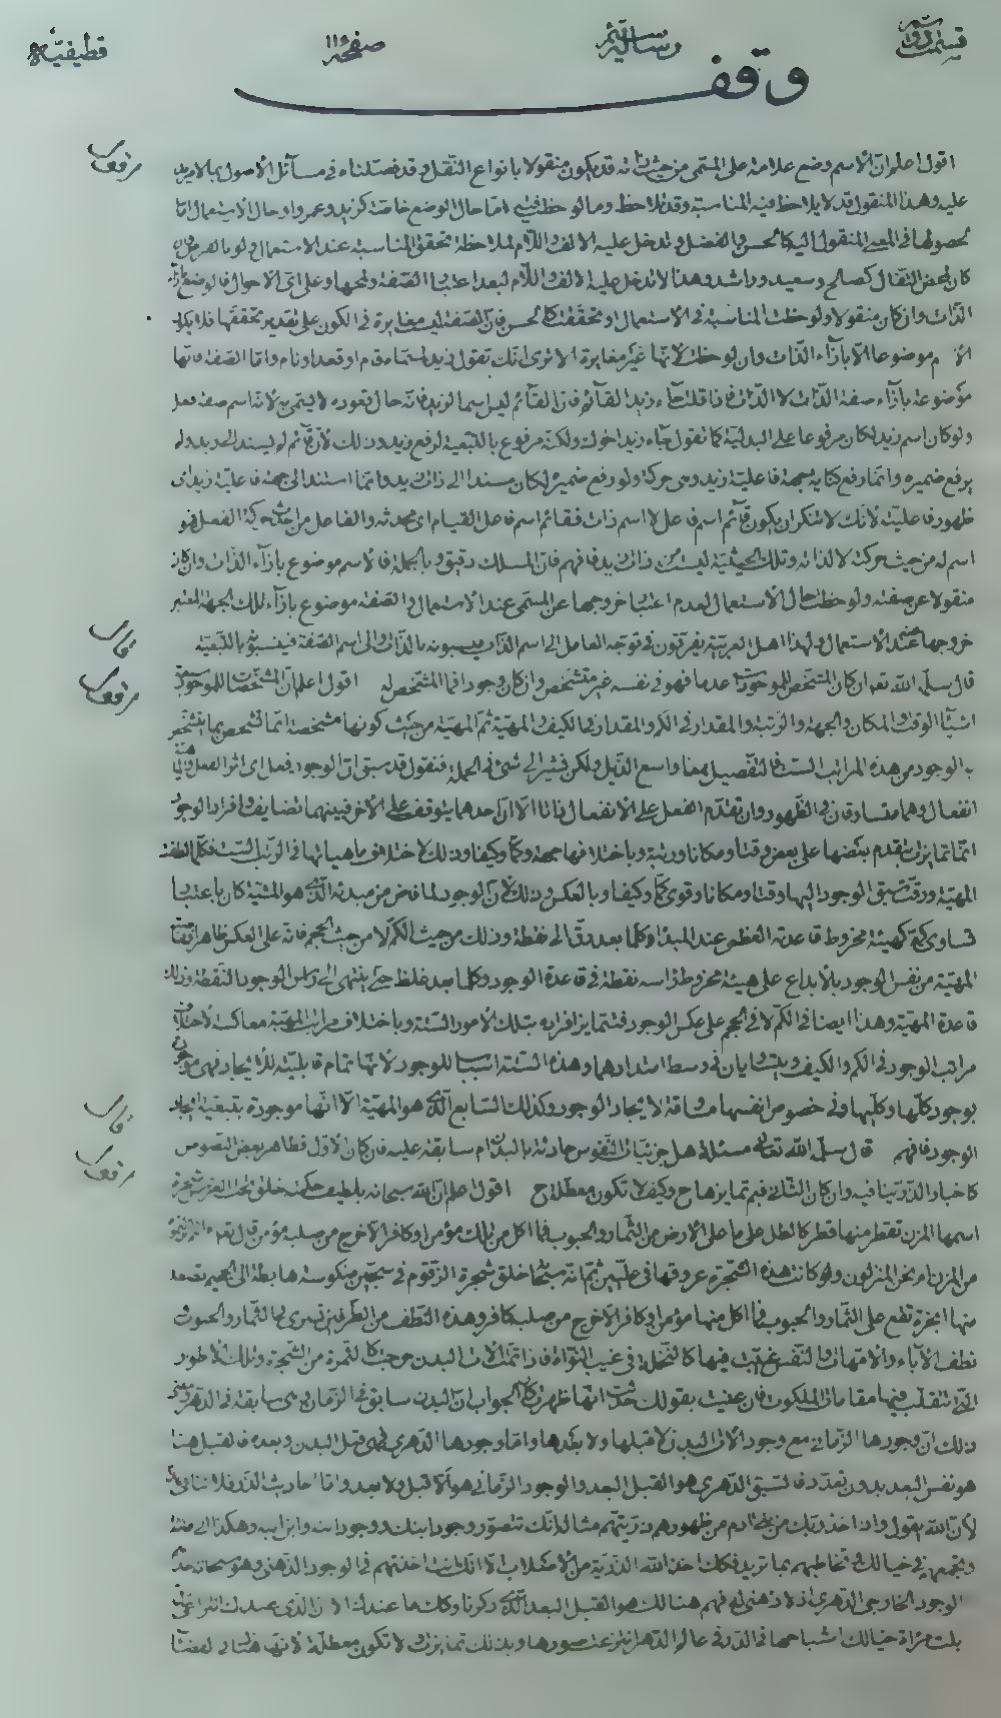 قسمت دوم رسالهٔ صفحه ١١٤ قطیفیّه
وقف
اقول اعلم ان الاسم وضع علامة على المسمى من حيث انه قد يكون منقولا بانواع النقل وقد فصلناه فى مسآئل الأصول بما لا مزيد
عليه وهذا المنقول قد لا يلاحظ فيه المناسبة وقد تلاحظ وما لوحظ فيه اما حال الوضع خاصة كزيد وعمرو او حال الاستعمال اما
لحصولها فى المعنى المنقول اليه كالحسن والفضل وتدخل عليه الالف واللام لملاحظة تحقق المناسبة عند الاستعمال ولو بالفرض وان
كان لمحض التفأل كصالح وسعيد وراشد وهذا لا تدخل عليه الالف واللام لبعد اعتبار الصفة ولمحها وعلى اى الاحوال فالوضع بازآء
الذات وان كان منقولا ولوحظت المناسبة فى الاستعمال او تحققت كالحسن فان الصفة ليست مغايرة فى الكون على تقدير تحققها فلا يكون
موضوعا الا بازآء الذات وان لوحظت لانها غير مغايرة الا ترى انك تقول زيد لمسماه قام او قعد او نام واما الصفة فانها
موضوعة بازآء صفة الذات لا الذات فاذا قلت جآء زيد القآئم فان القآئم ليس اسما لزيد فانه حال قعوده لا يسمى به لانه اسم صفة فعل
ولو كان اسم زيد لكان مرفوعا على البدلية كما تقول جآء زيد اخوك ولكنه مرفوع بالتبعية لرفع زيد وذلك لان قآئم لم يسند الى زيد ولم
يرفع ضميره وانما رفع كناية جهة فاعلية زيد وهى حركته ولو رفع ضميره لكان مسندا الى ذات زيد وانما استند الى جهة فاعلية زيد اى
ظهور فاعليته لانك لا تنكر ان يكون قآئم اسم فاعل لا اسم ذات فقآئم اسم فاعل القيام اى محدثه والفاعل من احدث حركة الفعل فهو
اسم له من حيث حركته لا لذاته وتلك الحيثية ليست من ذات زيد فافهم فان المسلك دقيق وبالجملة فالاسم موضوع بازآء الذات وان كان
منقولا عن صفة ولوحظت حال الاستعمال لعدم اعتبار خروجها عن المسمى عند الاستعمال والصفة موضوع بازآء تلك الجهة المعتبر
خروجها عند الاستعمال ولهذا اهل العربية يفرقون فى توجه العامل الى اسم الذات فينسبونه بالذات والى اسم الصفة فينسبونه بالتبعية
قال سلمه الله تعالى ان كان المشخص للموجود عدما فهو فى نفسه غير متشخص وان كان وجودا فما المشخص له اقول اعلم ان المشخصات للموجود ستة
اشيآء الوقت والمكان والجهة والرتبة والمقدار فى الكم والمقدار فى الكيف والمهية ثم المهية من حيث كونها مشخصة انما تشخص بما تتشخص
به الوجود من هذه المراتب الست فالتفصيل بمعنا واسع الذيل ولكن نشير الى شئ فى الجملة فنقول قد سبق ان الوجود فعل اى اثر الفعل والمهية
انفعال وهما متساوقان فى الظهور وان تقدم الفعل على الانفعال ذاتا الا ان احدهما يتوقف على الآخر فبينهما تضايف وافراد الوجود
انما تمايزت بتقدم بعضها على بعض وقتا ومكانا ورتبة وباختلافها جهة وكما وكيفا وذلك لاختلاف ماهياتها فى الرتب الست فكلما لطفت
المهية ورقت سبق الوجود اليها وقتا ومكانا وقوى كما وكيفا وبالعكس وذلك لان الوجود لما فاض من مبدئه الذى هو المشية كان باعتبار
تساوى كمه كهيئة مخروط قاعدته العظمى عند المبدء وكلما بعد دق الى نقطة وذلك من حيث الكم لا من حيث الحجم فانه على العكس ظاهرا
المهية من نفس الوجود بالابداع على هيئة مخروط راسه نقطة فى قاعدة الوجود وكلما بعد غلظ حتى ينتهى الى راس الوجود النقطة وذلك
قاعدة المهية وهذا ايضا فى الكم لا فى الحجم على عكس الوجود فتتمايز افراده بتلك الامور الستة وباختلاف مراتب المهية معاكسة لاختلاف
مراتب الوجود فى الكم والكيف ويتساويان فى وسط امتدادهما وهذه الستة اسباب للوجود لانها تمام قابليته للايجاد فهى موجودة
بوجود كلها وكليها وفى خصوص انفسها مساوقة لايجاد الوجود وكذلك السابع الذى هو المهية الا انها موجودة بتبعية ايجاد
الوجود فافهم قال سلمه الله تعالى مسئلة هل جزئيات النفوس حادثة بالبدن ام سابقة عليه فان كان الاول فظاهر بعض النصوص
كاخبار الذر تنافيه وان كان الثانى فبم تمايزها ح وكيف لا تكون معطلة ح اقول اعلم ان الله سبحانه بلطيف حكمته خلق تحت العرش شجرة
اسمها المزن تقطر منها قطر كالطل على ما على الارض من الثمار والحبوب فما اكل من تلك مؤمن او كافر الا خرج من صلبه مؤمن قال تعالى ءانتم انزلتموه
من المزن ام نحن المنزلون ولما كانت هذه الشجرة عروقها فى عليين ثم انه سبحانه خلق شجرة الزقوم فى سجين منكوسة هابطة الى الجحيم تصعد
منها ابخرة تقع على الثمار والحبوب فما اكل منها مؤمن او كافر الا خرج من صلبه كافر وهذه النطف من الطرفين تسرى فى الثمار والحبوب
نطف الآباء والامهات والنفس نبتت فيها كالنخلة فى غيب النواة فاذا تمت آلات البدن خرجت كالثمرة من الشجرة وتلك الاطوار
التى تتقلب فيها مقامات الملكوت فان عنيت بقولك حدثت انها ظهرت كان الجواب ان البدن سابق فى الزمان وهى سابقة فى الدهر ومعنى
ذلك ان وجودها الزمانى مع وجود آلات البدن لا قبلها ولا بعدها واما وجودها الدهرى فهى قبل البدن وبعده فالقبل هنا
هو نفس البعد بدون تعدد فالسبق الدهرى هو القبل البعد والوجود الزمانى هو لا قبل ولا بعد واما احاديث الذر فلا تنافى
لان الله يقول واذ اخذ ربك من بنى آدم من ظهورهم ذريتهم مثاله انك تتصور وجود ابنك ووجود ابنه وابن ابنه وهكذا الى مئة
وتجمعهم فى خيالك وتخاطبهم بما تريد فكذلك اخذ الله الذرية من الاصلاب الا انك انت اخذتهم فى الوجود الذهنى وهو سبحانه
الوجود الخارجى الدهرى اذ لا ذهنى له فهم هنالك هو القبل البعد الذى ذكرنا وكل ما عندك الآن الذى عندك انتزاعى
مرآة خيالك اشباحها فى الذر فى عالم الدهر انتزعت صورها وبذلك تمايزت ولا تكون معطلة لانها هنالك